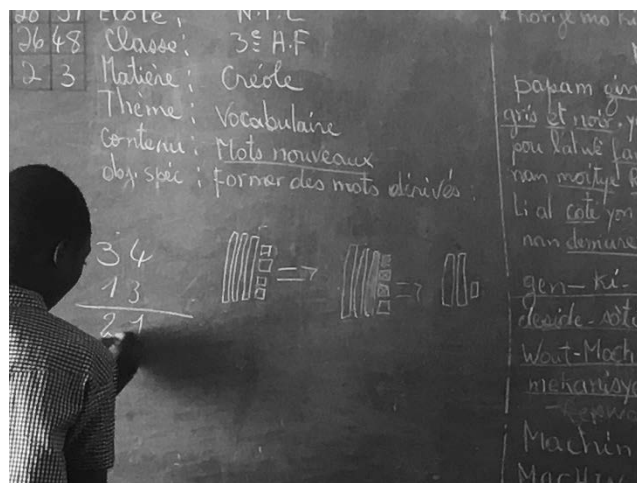 26 48
2 3
Classe: 3e A.F
Matière: Créole
Thème: Vocabulaire
contenu: Mots nouveaux
obj. spéc: former des mots dérivés.
34
13
21
papam
gris et noir, y
pou l'al
nan
Li al coté yon
nan demure
gen-ki-
deside-
Wout-Mach
mekanisy
Machin